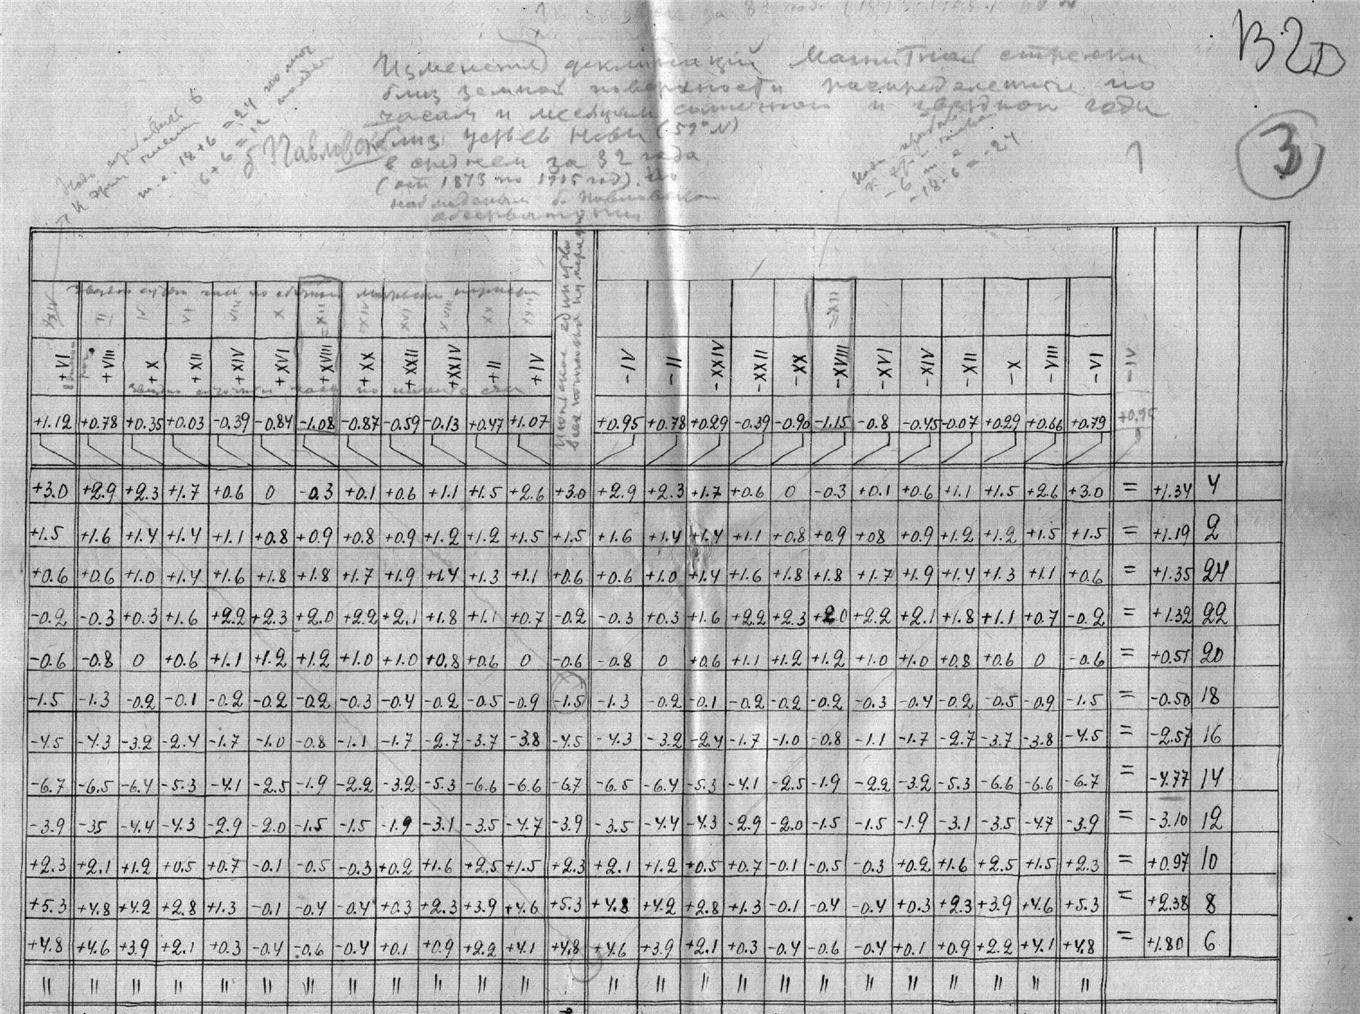 В2D
3
Изменения деклинаций магнитной стрелки
близ земной поверхности распределении по
часам и месяцам солнечного и звездного года
близ устьев Невы (59°N)
б Павловск
в среднем за 32 года
(от 1873 по 1915 год). По
наблюдениям б. Павловской
обсерватории
т.е. 18+6=24
6+6=12
-6
-18-6=-24
1
XXIV II IV VI VIII X =XII XIV XVI XVIII XX XXII =XII
+VI +VIII +X +XII +XIV +XVI +XVIII +XX +XXII +XXIV +II +IV -IV -II -XXIV -XXII -XX -XVIII -XVI -XIV -XII -X -VIII -VI -IV
+1.12 +0.78 +0.35 +0.03 -0.39 -0.84 -1.08 -0.87 -0.59 -0.13 +0.47 +1.07 +0.95 +0.78 +0.29 -0.39 -0.90 -1.15 -0.8 -0.45 -0.07 +0.29 +0.66 +0.79 +0.95
+3.0 +2.9 +2.3 +1.7 +0.6 0 -0.3 +0.1 +0.6 +1.1 +1.5 +2.6 +3.0 +2.9 +2.3 +1.7 +0.6 0 -0.3 +0.1 +0.6 +1.1 +1.5 +2.6 +3.0 = +1.34 4
+1.5 +1.6 +1.4 +1.4 +1.1 +0.8 +0.9 +0.8 +0.9 +1.2 +1.2 +1.5 +1.5 +1.6 +1.4 +1.4 +1.1 +0.8 +0.9 +08 +0.9 +1.2 +1.2 +1.5 +1.5 = +1.19 2
+0.6 +0.6 +1.0 +1.4 +1.6 +1.8 +1.8 +1.7 +1.9 +1.4 +1.3 +1.1 +0.6 +0.6 +1.0 +1.4 +1.6 +1.8 +1.8 +1.7 +1.9 +1.4 +1.3 +1.1 +0.6 = +1.35 24
-0.2 -0.3 +0.3 +1.6 +2.2 +2.3 +2.0 +2.2 +2.1 +1.8 +1.1 +0.7 -0.2 -0.3 +0.3 +1.6 +2.2 +2.3 +2.0 +2.2 +2.1 +1.8 +1.1 +0.7 -0.2 = +1.32 22
-0.6 -0.8 0 +0.6 +1.1 +1.2 +1.2 +1.0 +1.0 +0.8 +0.6 0 -0.6 -0.8 0 +0.6 +1.1 +1.2 +1.2 +1.0 +1.0 +0.8 +0.6 0 -0.6 = +0.51 20
-1.5 -1.3 -0.2 -0.1 -0.2 -0.2 -0.2 -0.3 -0.4 -0.2 -0.5 -0.9 -1.5 -1.3 -0.2 -0.1 -0.2 -0.2 -0.2 -0.3 -0.4 -0.2 -0.5 -0.9 -1.5 = -0.50 18
-4.5 -4.3 -3.2 -2.4 -1.7 -1.0 -0.8 -1.1 -1.7 -2.7 -3.7 -3.8 -4.5 -4.3 -3.2 -2.4 -1.7 -1.0 -0.8 -1.1 -1.7 -2.7 -3.7 -3.8 -4.5 = -2.57 16
-6.7 -6.5 -6.4 -5.3 -4.1 -2.5 -1.9 -2.2 -3.2 -5.3 -6.6 -6.6 -6.7 -6.5 -6.4 -5.3 -4.1 -2.5 -1.9 -2.2 -3.2 -5.3 -6.6 -6.6 -6.7 = -4.77 14
-3.9 -35 -4.4 -4.3 -2.9 -2.0 -1.5 -1.5 -1.9 -3.1 -3.5 -4.7 -3.9 -3.5 -4.4 -4.3 -2.9 -2.0 -1.5 -1.5 -1.9 -3.1 -3.5 -4.7 -3.9 = -3.10 12
+2.3 +2.1 +1.2 +0.5 +0.7 -0.1 -0.5 -0.3 +0.2 +1.6 +2.5 +1.5 +2.3 +2.1 +1.2 +0.5 +0.7 -0.1 -0.5 -0.3 +0.2 +1.6 +2.5 +1.5 +2.3 = +0.97 10
+5.3 +4.8 +4.2 +2.8 +1.3 -0.1 -0.4 -0.4 +0.3 +2.3 +3.9 +4.6 +5.3 +4.8 +4.2 +2.8 +1.3 -0.1 -0.4 -0.4 +0.3 +2.3 +3.9 +4.6 +5.3 = +2.38 8
+4.8 +4.6 +3.9 +2.1 +0.3 -0.4 -0.6 -0.4 +0.1 +0.9 +2.2 +4.1 +4.8 +4.6 +3.9 +2.1 +0.3 -0.4 -0.6 -0.4 +0.1 +0.9 +2.2 +4.1 +4.8 = +1.80 6
〃 〃 〃 〃 〃 〃 〃 〃 〃 〃 〃 〃 〃 〃 〃 〃 〃 〃 〃 〃 〃 〃 〃 〃